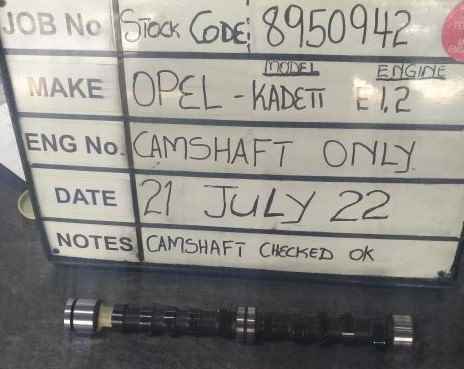 JOB No STOCK CODE: 8950942
MODEL ENGINE
MAKE OPEL - KADETT E 1.2
ENG No. CAMSHAFT ONLY
DATE 21 JULY 22
NOTES CAMSHAFT CHECKED OK